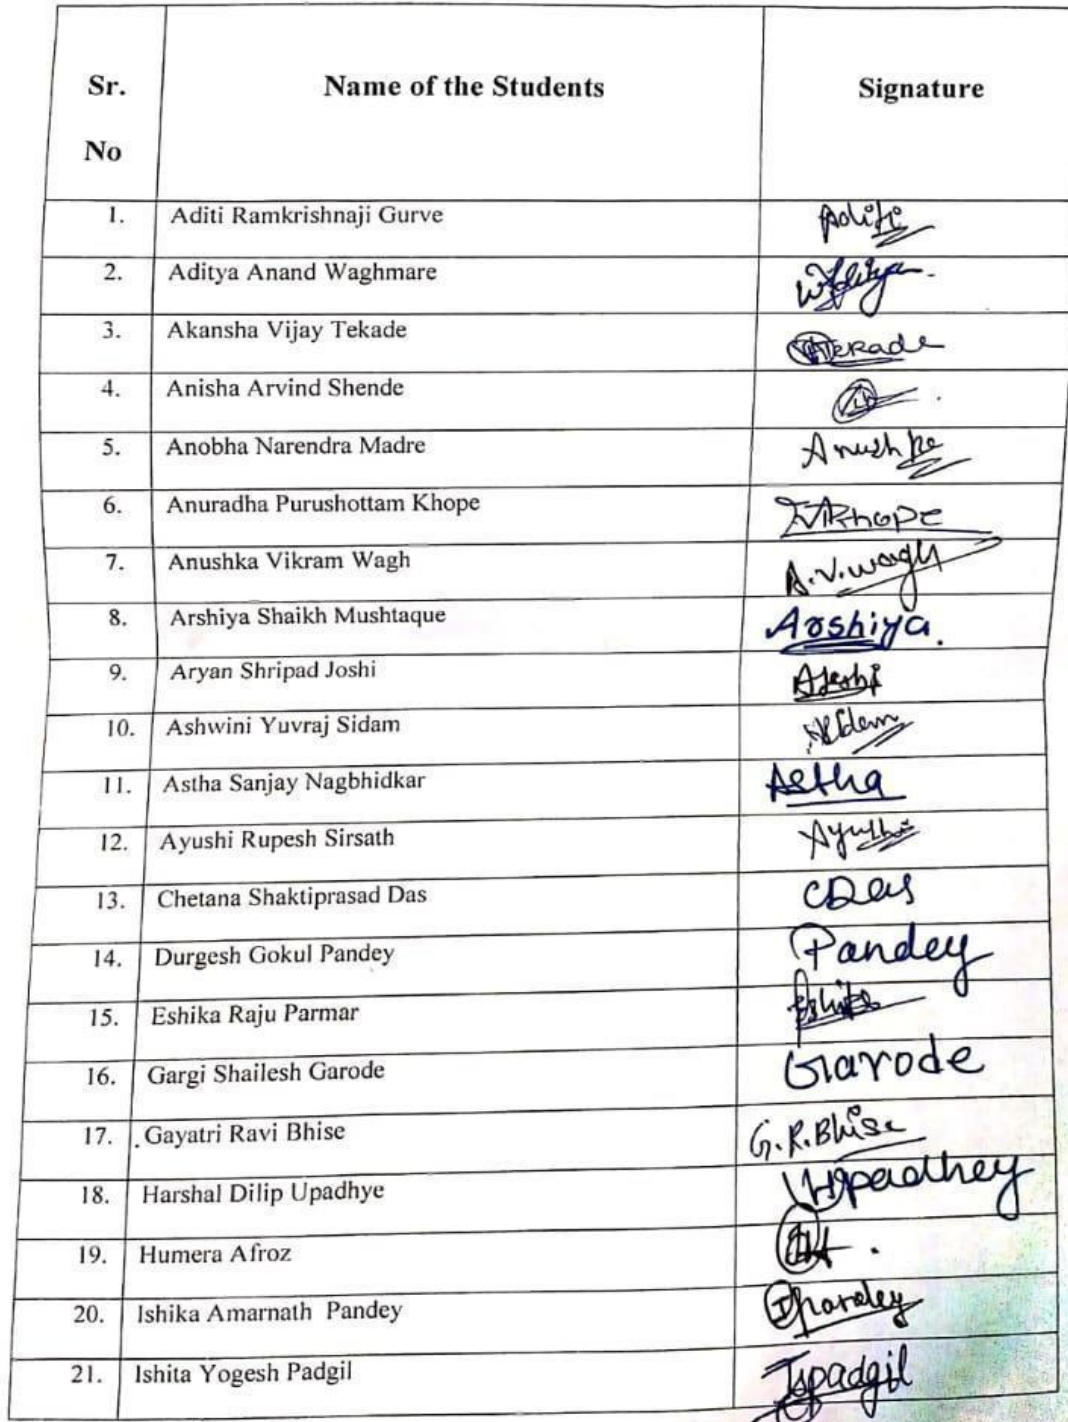 Sr. No Name of the Students Signature
1. Aditi Ramkrishnaji Gurve Aditi
2. Aditya Anand Waghmare WAditya
3. Akansha Vijay Tekade Tekade
4. Anisha Arvind Shende
5. Anobha Narendra Madre
6. Anuradha Purushottam Khope
7. Anushka Vikram Wagh A.V.Wagh
8. Arshiya Shaikh Mushtaque Arshiya.
9. Aryan Shripad Joshi AJoshi
10. Ashwini Yuvraj Sidam
11. Astha Sanjay Nagbhidkar Astha
12. Ayushi Rupesh Sirsath Ayushi
13. Chetana Shaktiprasad Das CDas
14. Durgesh Gokul Pandey Pandey
15. Eshika Raju Parmar Eshika
16. Gargi Shailesh Garode Garode
17. .Gayatri Ravi Bhise G.R.Bhise
18. Harshal Dilip Upadhye
19. Humera Afroz
20. Ishika Amarnath Pandey IPandey
21. Ishita Yogesh Padgil